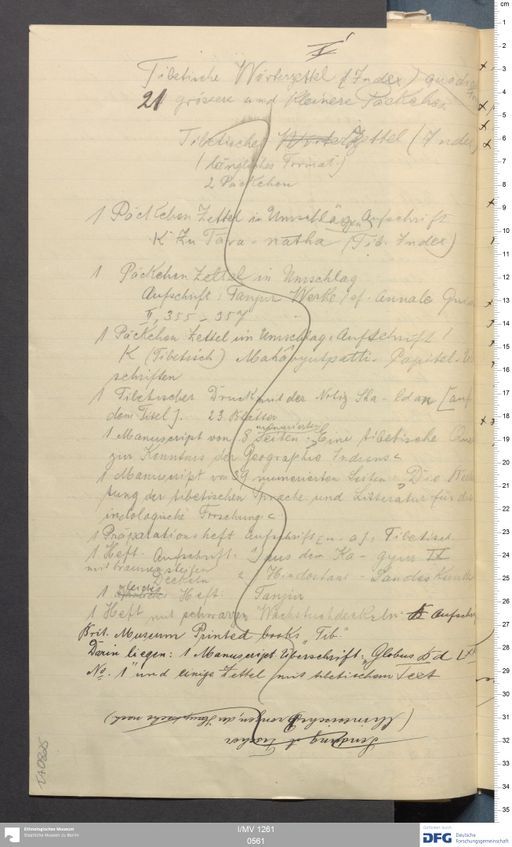 V
Tibetische Wörterzettel (Index)
21 grössere und kleinere Päckchen
Tibetische Zettel (Index)
(längliches Format)
2 Päckchen
1 Päckchen Zettel in Umschlägen Aufschrift
K Zu Tara-natha (Tib. Index)
1 Päckchen Zettel in Umschlag
Aufschrift: Tanjur Werke, cf. Annale
II, 355-357
1 Päckchen Zettel im Umschlag: Aufschrift:
K (Tibetisch) Mahāvyutpatti - Capitel-
schriften
1 Tibetischer Druck mit der Notiz Ska-ldan [auf
dem Titel]. 23 Blätter
1 Manuscript von 8 numerierten Seiten: Eine tibetische
zur Kenntnis der Geographie Indiens
1 Manuscript von 39 numerierten Seiten: Die
tung der tibetischen Sprache und Litteratur für die
indologische Forschung
1 Präparationsheft Aufschrift Tibetisch
1 Heft Aufschrift: aus dem Ka-gyur IV
mit braunen steifen Deckeln
Hindostans - Landes Kunde
1 Heft: Tanjur
1 Heft mit schwarzen Wachstuchdeckeln Aufschr
Brit. Museum Printed books „Tib"
Darin liegen: 1 Manuscript Überschrift: Globus Bd
No. 1" und einige Zettel mit tibetischem Text
Sendung d. Fischer
(Chinesische
I/MV 1261
0561
Ethnologisches Museum
Staatliche Museen zu Berlin
Gefördert durch
DFG Deutsche
Forschungsgemeinschaft
cm 1 2 3 4 5 6 7 8 9 10 11 12 13 14 15 16 17 18 19 20 21 22 23 24 25 26 27 28 29 30 31 32 33 34 35